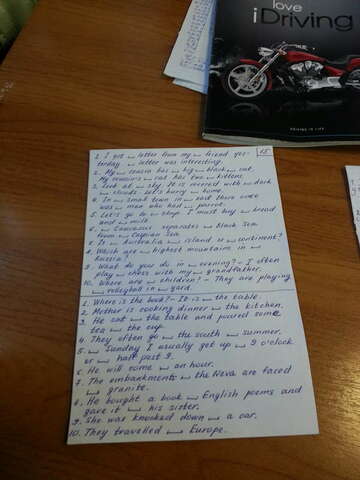 love
iDriving
DRIVING IS LIFE
15
1. I got ⎵ letter from my ⎵ friend yes-
terday. ⎵ letter was interesting.
2. My ⎵ cousin has ⎵ big ⎵ black ⎵ cat.
My cousin's ⎵ cat has two ⎵ kittens.
3. Look at ⎵ sky. It is covered with ⎵ dark
⎵ clouds. Let's hurry ⎵ home.
4. In ⎵ small town in ⎵ east there once
was ⎵ man who had ⎵ parrot.
5. Let's go to ⎵ shop. I must buy ⎵ bread
and ⎵ milk.
6. ⎵ Caucasus separates ⎵ Black Sea
from ⎵ Caspian Sea.
7. Is ⎵ Australia ⎵ island or ⎵ continent?
8. Which are ⎵ highest mountains in ⎵
Russia?
9. What do you do in ⎵ evening? - I often
play ⎵ chess with my ⎵ grandfather.
10. Where are ⎵ children? - They are playing
⎵ volleyball in ⎵ yard.
1. Where is the book? - It is ⎵ the table.
2. Mother is cooking dinner ⎵ the kitchen.
3. He sat ⎵ the table and poured some
tea ⎵ the cup.
4. They often go ⎵ the south ⎵ summer.
5. ⎵ Sunday I usually get up ⎵ 9 o'clock
or ⎵ half past 9.
6. He will come ⎵ an hour.
7. The embankments ⎵ the Neva are faced
⎵ granite.
8. He bought a book ⎵ English poems and
gave it ⎵ his sister.
9. She was knocked down ⎵ a car.
10. They travelled ⎵ Europe.